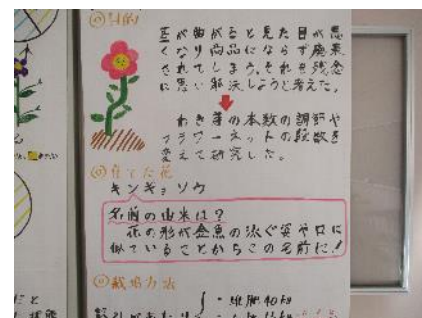 ◎目的
茎が曲がると見た目が悪
くなり商品にならず廃棄
されてしまう。それを残念
に思い解決しようと考えた。
わき芽の本数の調節や
フラワーネットの段数を
変えて研究した。
◎育てた花
キンギョソウ
名前の由来は?
花の形が金魚の泳ぐ姿や口に
似ていることからこの名前に!
◎栽培方法